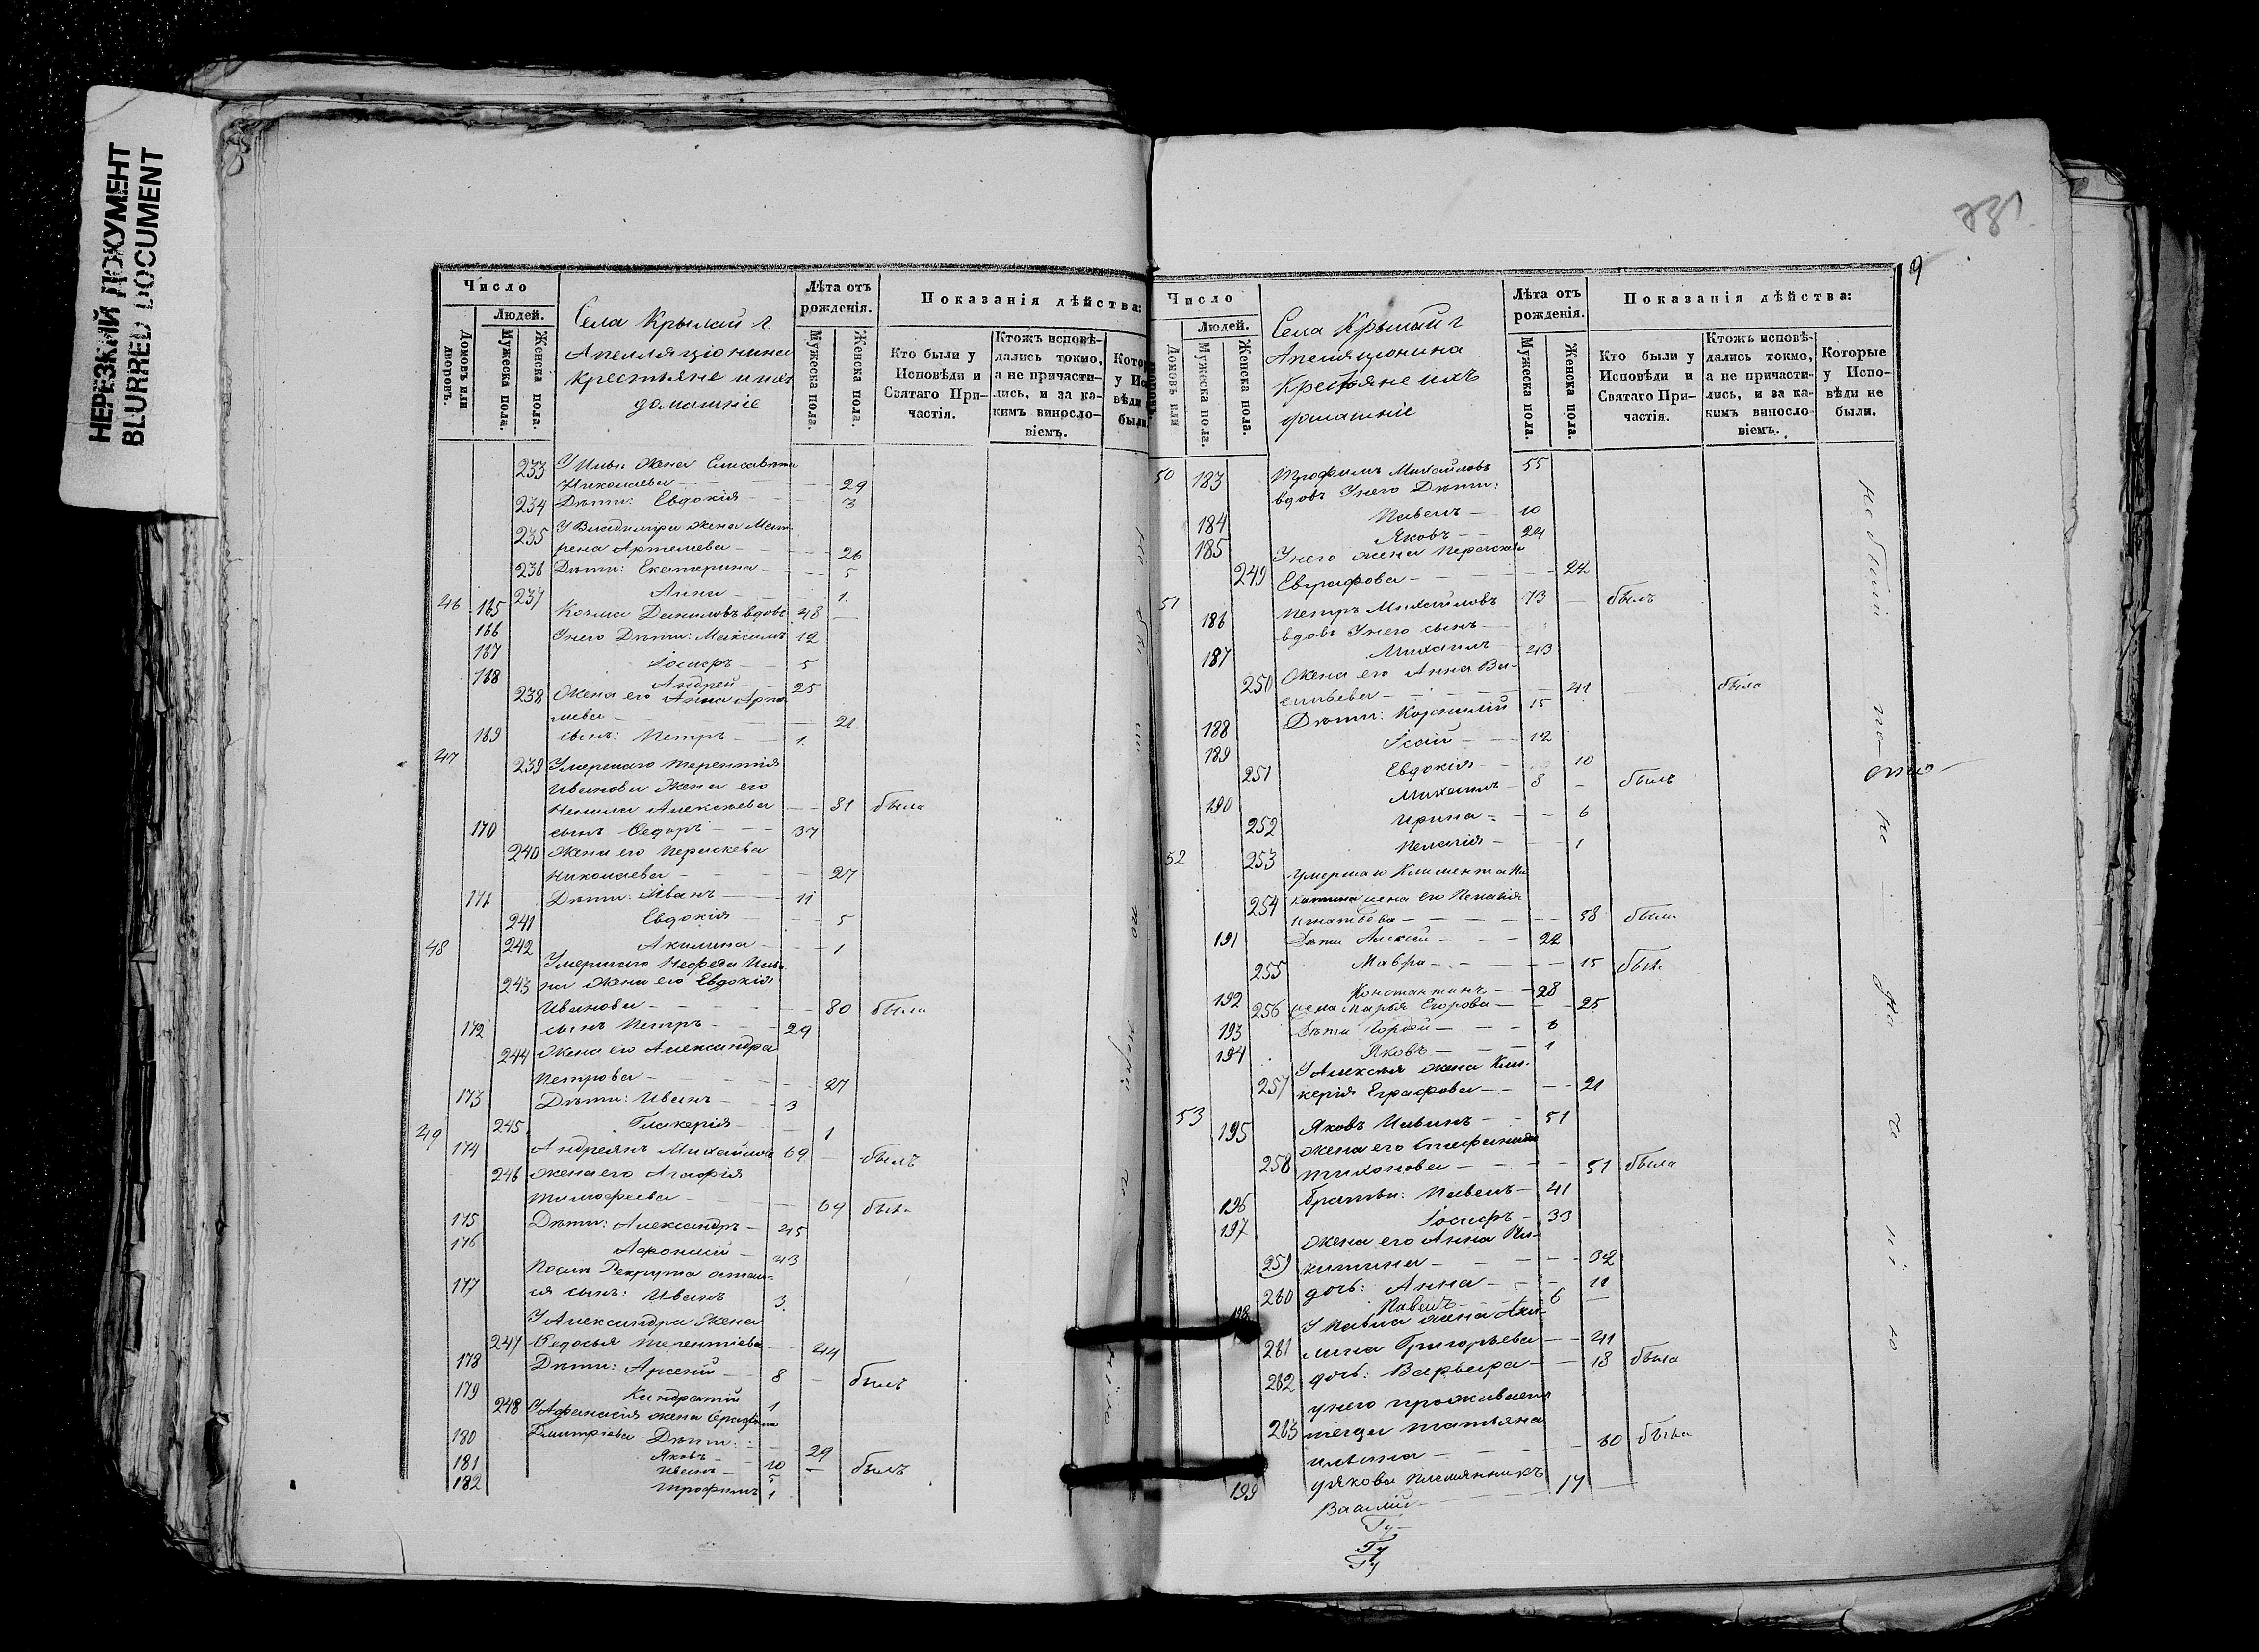 НЕРЕЗКИЙ ДОКУМЕНТ
BLURRED DOCUMENT
Число
Людей.
Домовъ или дворовъ.
Мужеска пола.
Женска пола.
Села Крылай г.
Апелляціонина
крестьяне и ихъ
домашніе
Лѣта отъ рожденія.
Мужеска пола.
Женска пола.
Показанія дѣйства:
Кто были у Исповѣди и Святаго Причастія.
Ктожъ исповѣдались токмо, а не причастились, и за какимъ винословіемъ.
233 У Ильи жена Елисавета
Николаева 29
234 Дѣти: Евдокія 3
235 У Владиміра жена Мат-
рена Артемева 26
236 Дѣти: Екатерина 5
237 Анна 1
46 165 Козма Даниловъ вдовъ 48
166 У него Дѣти: Максимъ 12
167 Іосифъ 5
168 Андрей 25
238 Жена его Анна Арте
мева 21
169 сынъ: Петръ 1
47 239 Умершаго Терентія
Иванова жена его
Алексѣева 81 была
170 сынъ Ѳедоръ 37
240 жена его Параскева
Николаева 27
171 Дѣти: Иванъ 11
241 Евдокія 5
242 Акилина 1
48 Умершаго Нефеда Ильи
243 на жена его Евдокія
Иванова 80 была
172 сынъ Петръ 29
244 жена его Александра
Петрова 27
173 Дѣти: Иванъ 3
245 Гликерія 1
49 174 Андреянъ Михайловъ 69 былъ
246 жена его Агафія
Тимофеева 69 была
175 Дѣти: Александръ 45
176 Афонасій 43
Посли Рекрута остал-
177 ся сынъ: Иванъ 3
У Александра жена
247 Ѳедосья Терентіева 44
178 Дѣти: Арсеній 8 былъ
179 Кондратій 1
248 У Афанасія жена
Дмитріева Дѣти: 29
180 Яковъ 10 былъ
181 Иванъ 5
182 Трофимъ 1
731
9
Число
Людей.
Домовъ или дворовъ.
Мужеска пола.
Женска пола.
Села Крылай г
Апелляціонина
Крестьяне ихъ
домашніе
Лѣта отъ рожденія.
Мужеска пола.
Женска пола.
Показанія дѣйства:
Кто были у Исповѣди и Святаго Причастія.
Ктожъ исповѣдались токмо, а не причастились, и за какимъ винословіемъ.
Которые у Исповѣди не были.
50 183 Трофимъ Михайловъ 55
вдовъ У него Дѣти:
184 Павелъ 10
185 Яковъ 24
У него жена Параскева
249 Евграфова 22
51 186 Петръ Михайловъ 73 былъ
вдовъ У него сынъ
187 Михаилъ 43
250 Жена его Анна Ва-
сильева 41 была
188 Дѣти: Корнилій 15
189 Исаій 12
251 Евдокія 10
190 Михаилъ 8 былъ
252 Ирина 6
253 Пелагія 1
52 Умершаго Климента Ни
254 китина жена его Пелагія
Игнатьева 58 была
191 Дѣти Алексѣй 22
255 Мавра 15 была
192 Константинъ 28
256 жена Марья Егорова 25
193 Дѣти Гордей
194 Яковъ 1
У Алексѣя жена Гли-
257 керія Еграфова 21
53 195 Яковъ Ильинъ 51
258 жена его Стефанида
Тихонова 51 была
196 братьи: Павелъ 41
197 Іосифъ 33
жена его Анна Ни-
259 китина 32
260 дочь: Анна 11
198 Павелъ 6
У Павла жена Аки-
261 лина Григорьева 41
262 дочь: Варвара 18 была
у него проживаетъ
263 теща Татьяна
Ильина 60 была
199 у Якова племянникъ 17
Василій